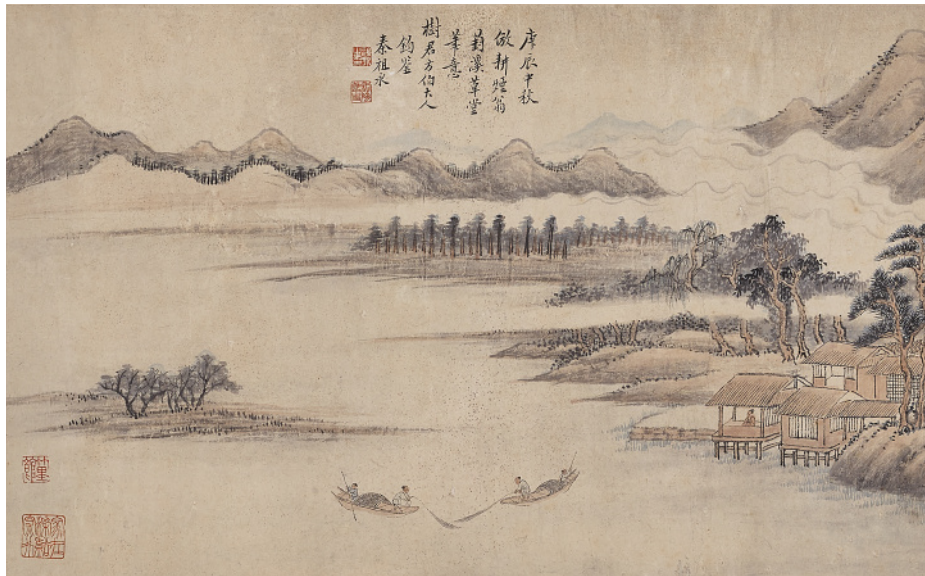 庚辰中秋
倣耕煙翁
葑溪草堂
筆意
樹君方伯大人
鈞鑒
秦祖永